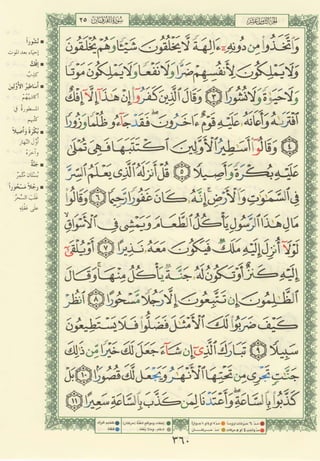 سورة الفرقان ٢٥
وَاتَّخَذُوا مِن دُونِهِ ءَالِهَةً لَّا يَخْلُقُونَ شَيْئًا وَهُمْ يُخْلَقُونَ
وَلَا يَمْلِكُونَ لِأَنفُسِهِمْ ضَرًّا وَلَا نَفْعًا وَلَا يَمْلِكُونَ مَوْتًا
وَلَا حَيَوٰةً وَلَا نُشُورًا ٣ وَقَالَ الَّذِينَ كَفَرُوا إِنْ هَٰذَا إِلَّا إِفْكٌ
افْتَرَىٰهُ وَأَعَانَهُ عَلَيْهِ قَوْمٌ ءَاخَرُونَ فَقَدْ جَاءُو ظُلْمًا وَزُورًا
٤ وَقَالُوا أَسَٰطِيرُ الْأَوَّلِينَ اكْتَتَبَهَا فَهِىَ تُمْلَىٰ
عَلَيْهِ بُكْرَةً وَأَصِيلًا ٥ قُلْ أَنزَلَهُ الَّذِى يَعْلَمُ السِّرَّ
فِى السَّمَٰوَٰتِ وَالْأَرْضِ إِنَّهُ كَانَ غَفُورًا رَّحِيمًا ٦ وَقَالُوا
مَالِ هَٰذَا الرَّسُولِ يَأْكُلُ الطَّعَامَ وَيَمْشِى فِى الْأَسْوَاقِ
لَوْلَا أُنزِلَ إِلَيْهِ مَلَكٌ فَيَكُونَ مَعَهُ نَذِيرًا ٧ أَوْ يُلْقَىٰ
إِلَيْهِ كَنزٌ أَوْ تَكُونُ لَهُ جَنَّةٌ يَأْكُلُ مِنْهَا وَقَالَ
الظَّٰلِمُونَ إِن تَتَّبِعُونَ إِلَّا رَجُلًا مَّسْحُورًا ٨ انظُرْ
كَيْفَ ضَرَبُوا لَكَ الْأَمْثَٰلَ فَضَلُّوا فَلَا يَسْتَطِيعُونَ
سَبِيلًا ٩ تَبَارَكَ الَّذِى إِن شَاءَ جَعَلَ لَكَ خَيْرًا مِّن ذَٰلِكَ
جَنَّٰتٍ تَجْرِى مِن تَحْتِهَا الْأَنْهَٰرُ وَيَجْعَل لَّكَ قُصُورًا ١٠ بَلْ
كَذَّبُوا بِالسَّاعَةِ وَأَعْتَدْنَا لِمَن كَذَّبَ بِالسَّاعَةِ سَعِيرًا ١١
٣٦٠
نُشُورًا
إحياء بعد الموت
إِفْكٌ
كذب
أَسَاطِيرُ الْأَوَّلِينَ
بُكْرَةً وَأَصِيلًا
أوّل النهار
وآخره
جَنَّةٌ
رَجُلًا مَسْحُورًا